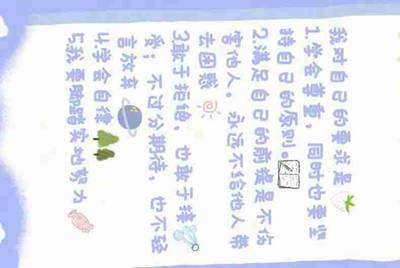 我对自己的要求是
1.学会尊重，同时也要坚
持自己的原则。
2.满足自己的前提是不伤
害他人。永远不给他人带
去困惑
3.敢于拒绝，也敢于接
爱；不过分期待，也不轻
言放弃
4.学会自律
5.我要脚踏实地努力